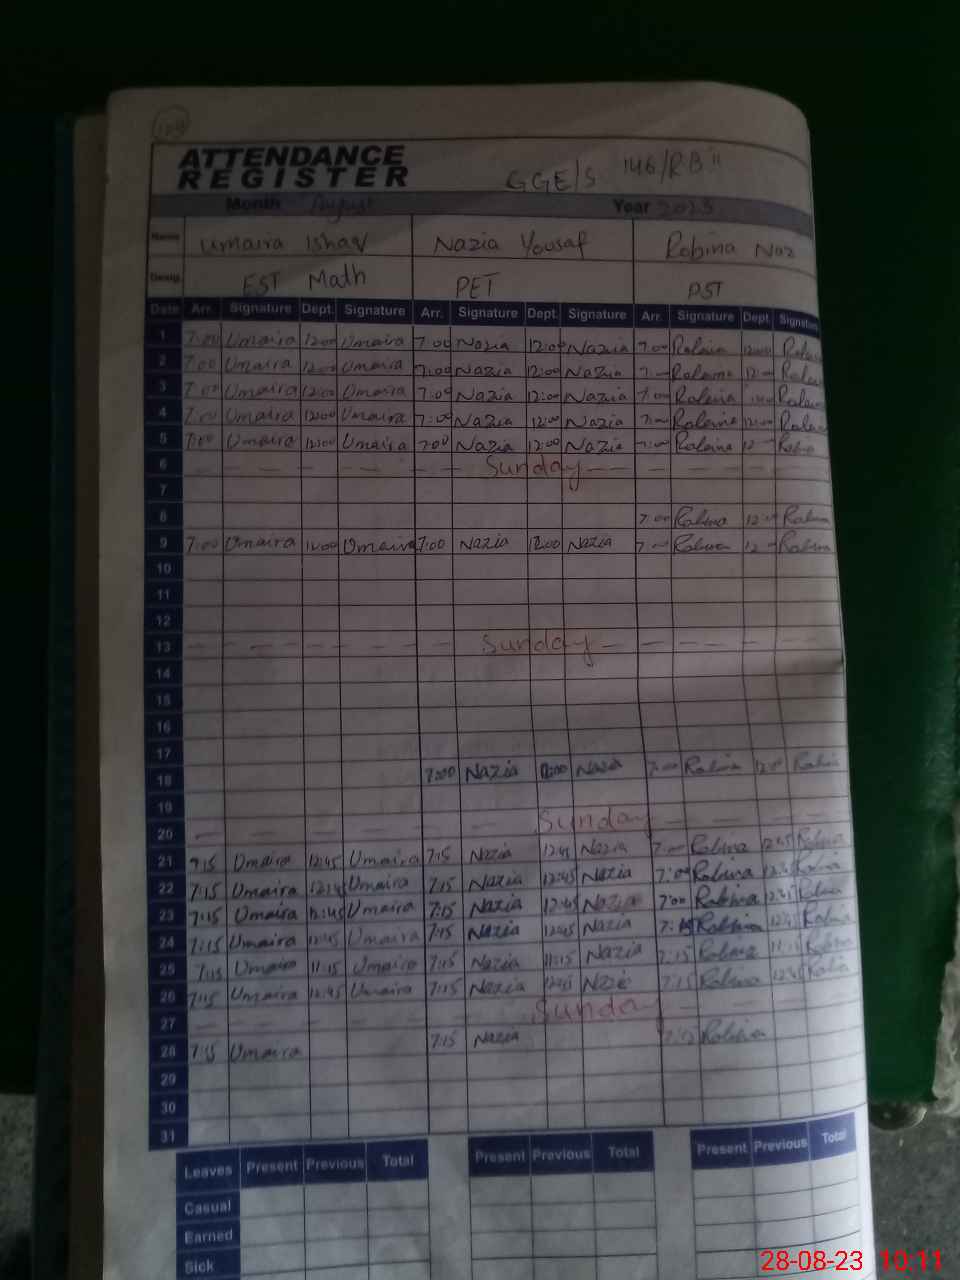 ATTENDANCE
REGISTER
GGE/S 146/RB"
Month August Year 2023
Name Umaira Ishaq Nazia Yousaf Robina Naz
Desig. EST Math PET PST
Date Arr. Signature Dept. Signature Arr. Signature Dept. Signature Arr. Signature Dept. Signature
1 7:00 Umaira 12:00 Umaira 7:00 Nazia 12:00 Nazia 7:00 Robina 12:00
2 7:00 Umaira 12:00 Umaira 7:00 Nazia 12:00 Nazia 7:00 Robina 12:00
3 7:00 Umaira 12:00 Umaira 7:00 Nazia 12:00 Nazia 7:00 Robina
4 7:00 Umaira 12:00 Umaira 7:00 Nazia 12:00 Nazia 7:00 Robina 12:00
5 7:00 Umaira 12:00 Umaira 7:00 Nazia 12:00 Nazia 7:00 Robina 12 Robina
6 Sunday
7
8 7:00 Robina 12:00 Robina
9 7:00 Umaira 12:00 Umaira 7:00 Nazia 12:00 Nazia 7:00 Robina 12 Robina
10
11
12
13 Sunday
14
15
16
17
18 7:00 Nazia 12:00 Nazia 7:00 Robina 12:00 Robina
19
20 Sunday
21 7:15 Umaira 12:45 Umaira 7:15 Nazia 12:45 Nazia 7:00 Robina 12:45 Robina
22 7:15 Umaira 12:45 Umaira 7:15 Nazia 12:45 Nazia 7:00 Robina 12:45 Robina
23 7:15 Umaira 12:45 Umaira 7:15 Nazia 12:45 Nazia 7:00 Robina 12:45 Robina
24 7:15 Umaira 12:45 Umaira 7:15 Nazia 12:45 Nazia 7:15 Robina 12:45 Robina
25 7:15 Umaira 11:15 Umaira 7:15 Nazia 11:15 Nazia 7:15 Robina 11:15 Robina
26 7:15 Umaira 12:45 Umaira 7:15 Nazia 12:45 Nazia 7:15 Robina 12:45 Robina
27 Sunday
28 7:15 Umaira 7:15 Nazia 7:15 Robina
29
30
31
Leaves Present Previous Total Present Previous Total Present Previous Total
Casual
Earned
Sick
28-08-23 10:11